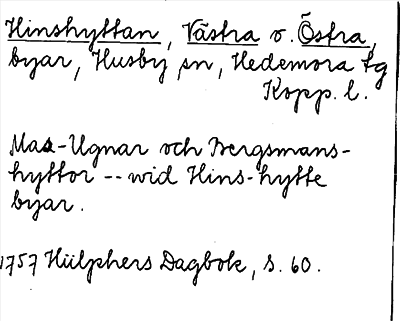 Hinshyttan, Västra o. Östra,
byar, Husby sn, Hedemora tg
Kopp. l.
Mas-Ugnar och Bergsmans-
hyttor -- wid Hins-hytte
byar.
1757 Hülphers Dagbok, s. 60.